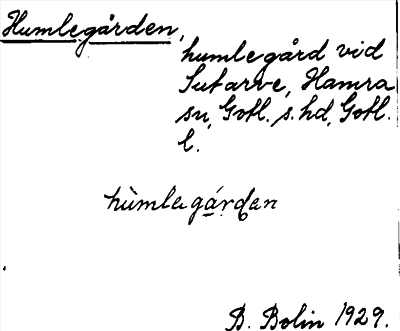 Humlegården,
humlegård vid
Sutarve, Hamra
sn, Gotl. s. hd, Gotl.
l.
hùmlegá̱rden
B. Bolin 1929.